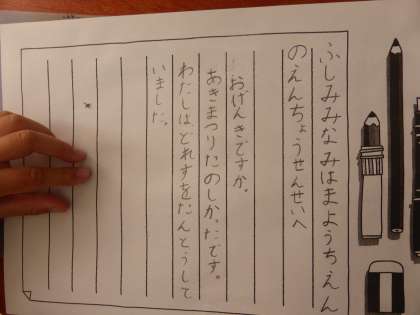 ふしみみなみはまようちえん
のえんちょうせんせいへ
おげんきですか。
あきまつりたのしかったです。
わたしはどれすをたんとうして
いました。